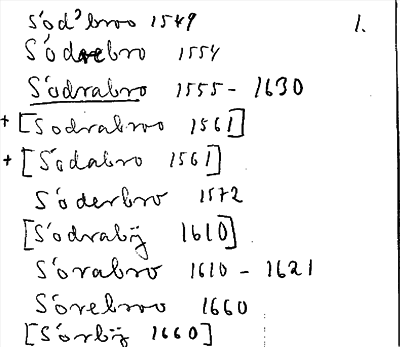 Söd'broo 1549 1.
Södrebro 1554
Södrabro 1555 - 1630
+ [Sodrabroo 1561]
+ [Södabro 1561]
Söderbro 1572
[Södrabÿ 1610]
Sörabro 1610 - 1621
Sörebroo 1660
[Sörbÿ 1660]